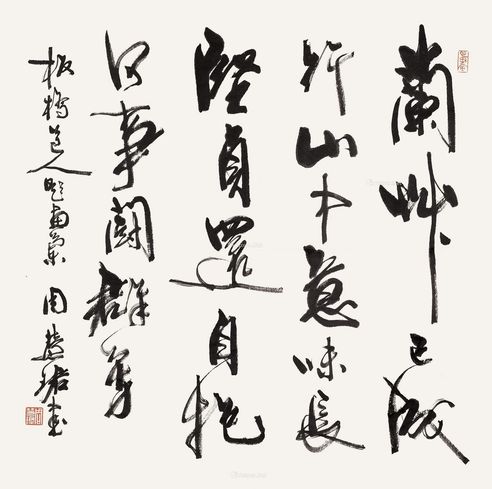 蘭艸已成
行山中意味長
堅貞還自抱
何事鬪群芳
板橋道人題畫蘭 周慧珺書